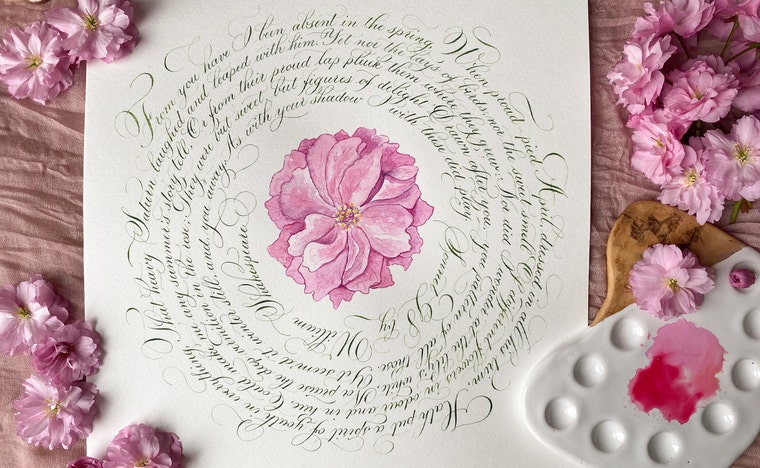 From you have I been absent in the spring,
When proud-pied April, dressed in all his trim,
Hath put a spirit of youth in everything,
That heavy Saturn laughed and leaped with him.
Yet nor the lays of birds, nor the sweet smell
Of different flowers in odour and in hue,
Could make me any summer's story tell,
Or from their proud lap pluck them where they grew:
Nor did I wonder at the lily's white,
Nor praise the deep vermilion in the rose;
They were but sweet, but figures of delight
Drawn after you, you pattern of all those.
Yet seemed it winter still, and you away,
As with your shadow I with these did play.
Sonnet 98 by William Shakespeare